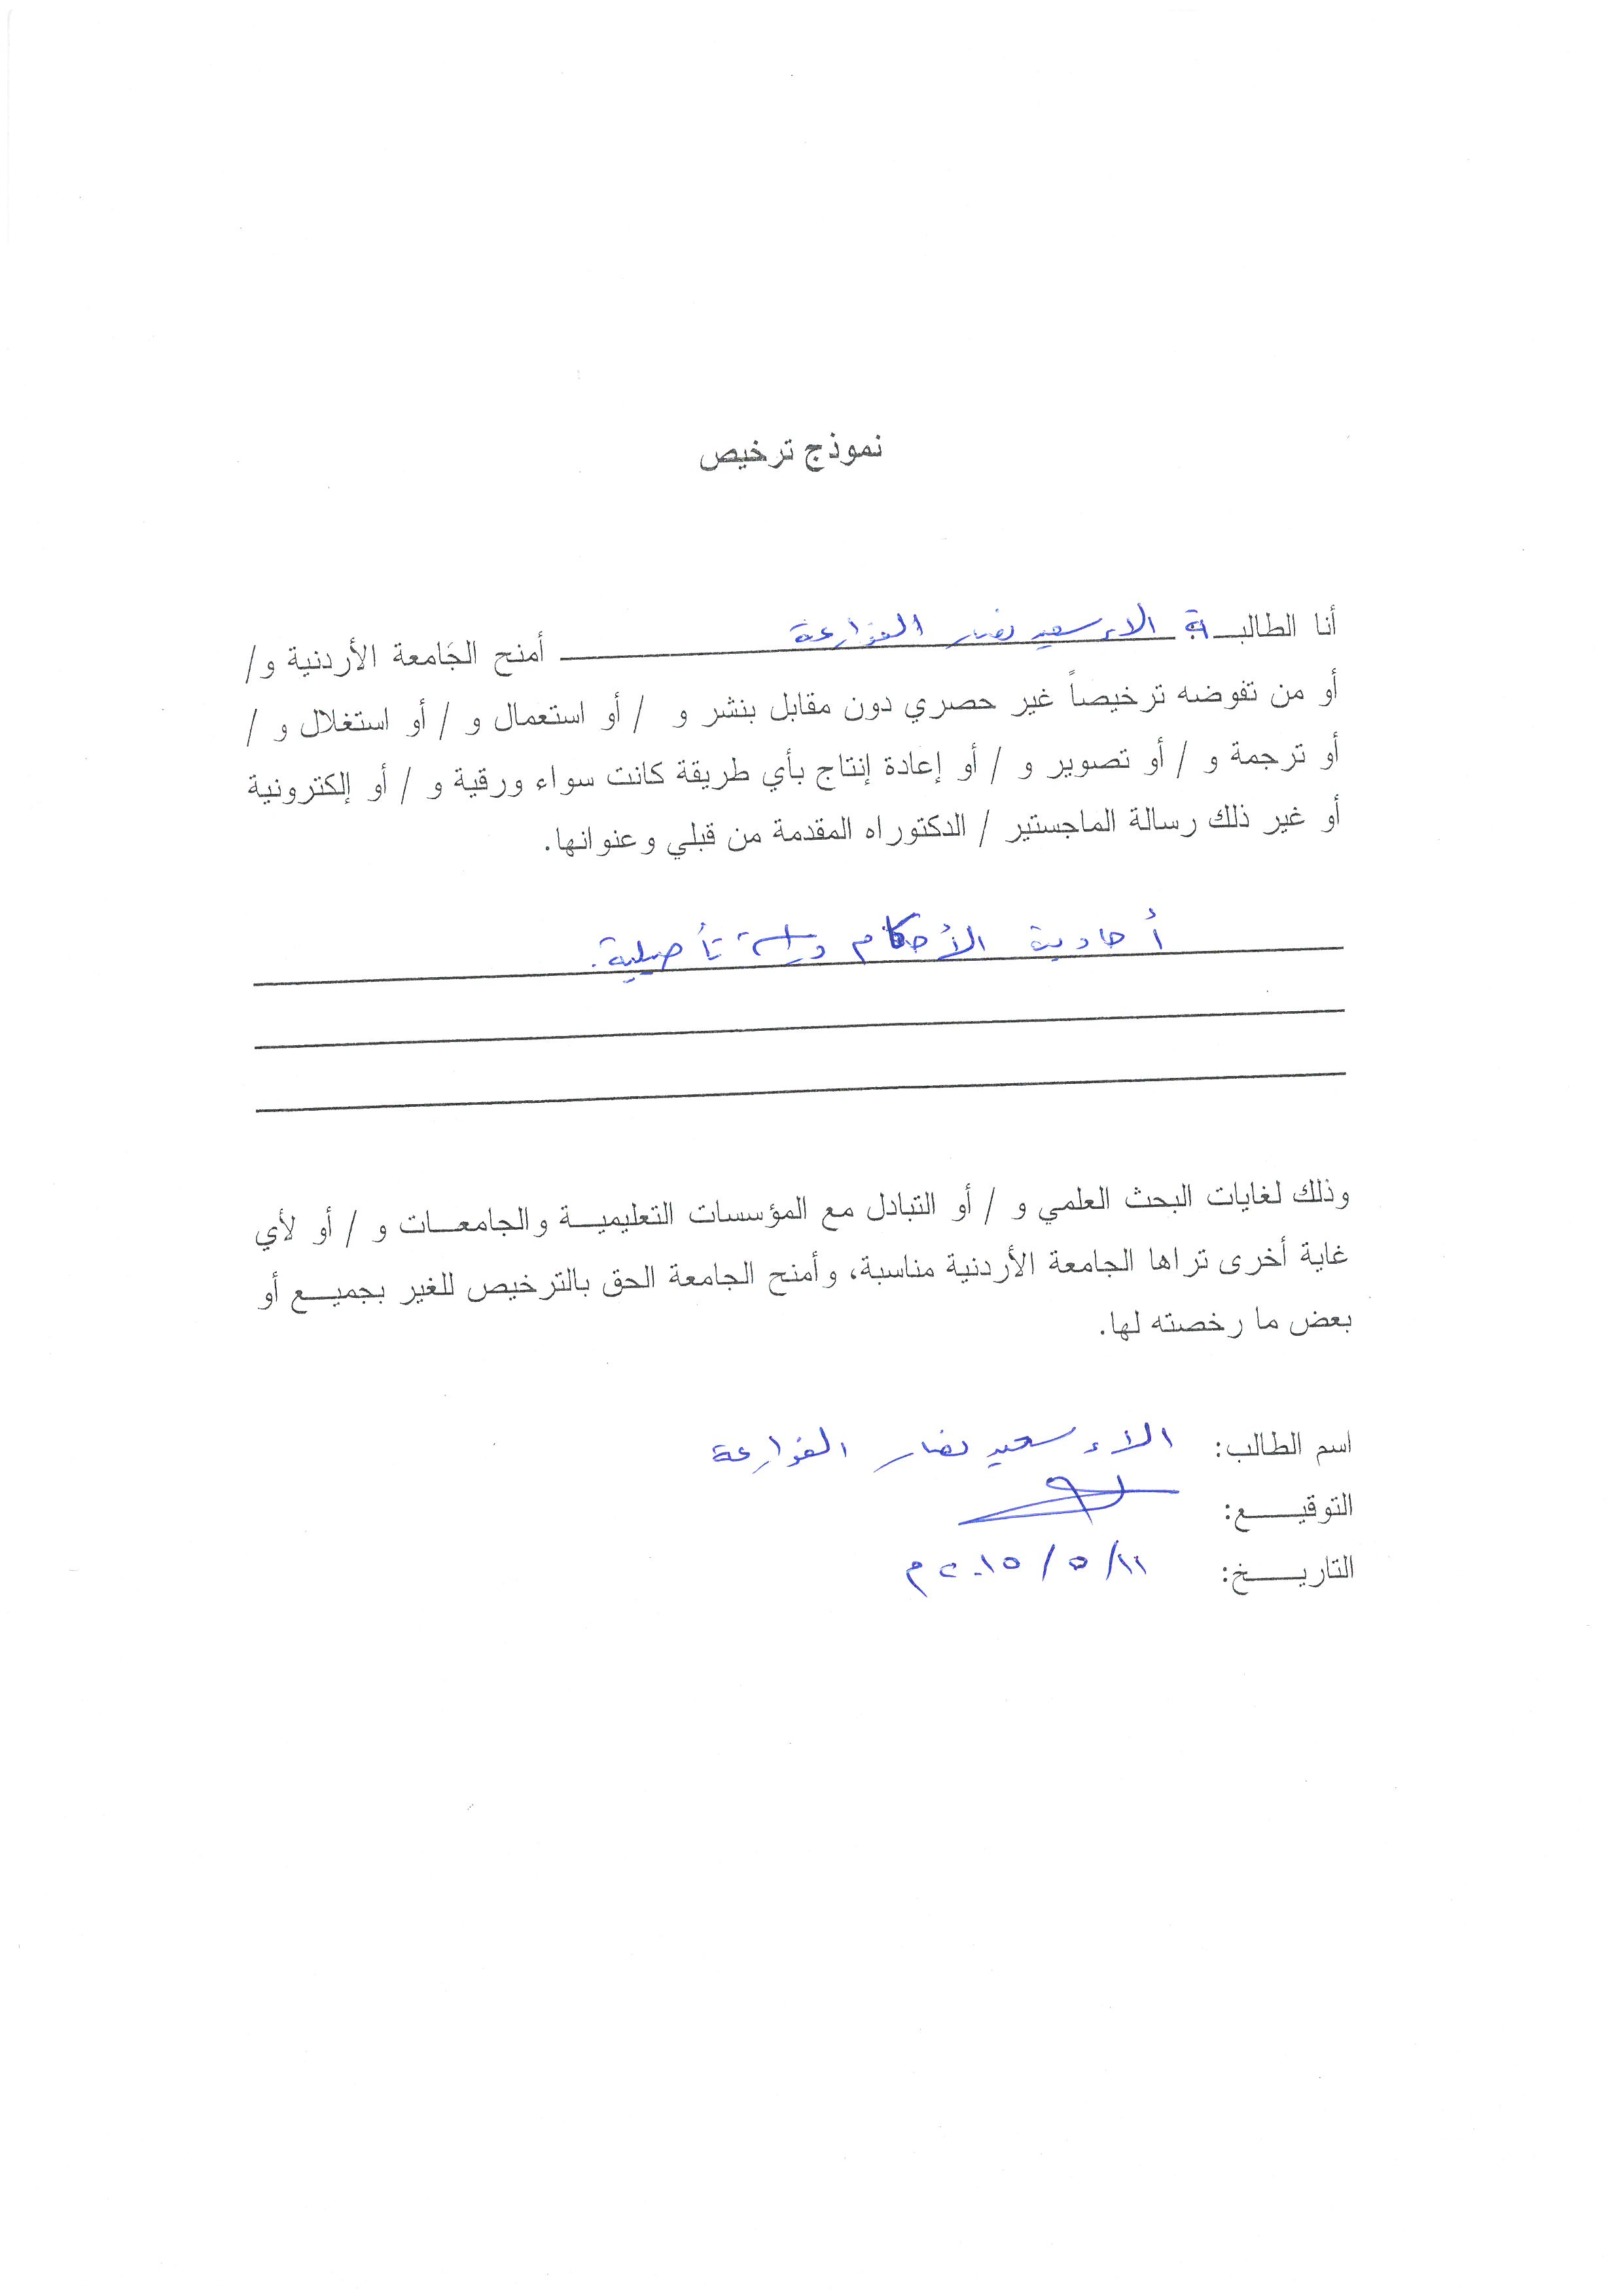 نموذج ترخيص
أنا الطالبـــة الاء سعيد نصار الفوارعة أمنح الجامعة الأردنية و/
أو من تفوضه ترخيصاً غير حصري دون مقابل بنشر و / أو استعمال و / أو استغلال و /
أو ترجمة و / أو تصوير و / أو إعادة إنتاج بأي طريقة كانت سواء ورقية و / أو إلكترونية
أو غير ذلك رسالة الماجستير / الدكتوراه المقدمة من قبلي وعنوانها.
أحاديث الأحكام دراسة تأصيلية.
وذلك لغايات البحث العلمي و / أو التبادل مع المؤسسات التعليميـــة والجامعـــات و / أو لأي
غاية أخرى تراها الجامعة الأردنية مناسبة، وأمنح الجامعة الحق بالترخيص للغير بجميـــع أو
بعض ما رخصته لها.
اسم الطالب: الاء سعيد نصار الفوارعة
التوقيـــــع:
التاريـــــخ: ١١/ ٥ / ٢٠١٥ م